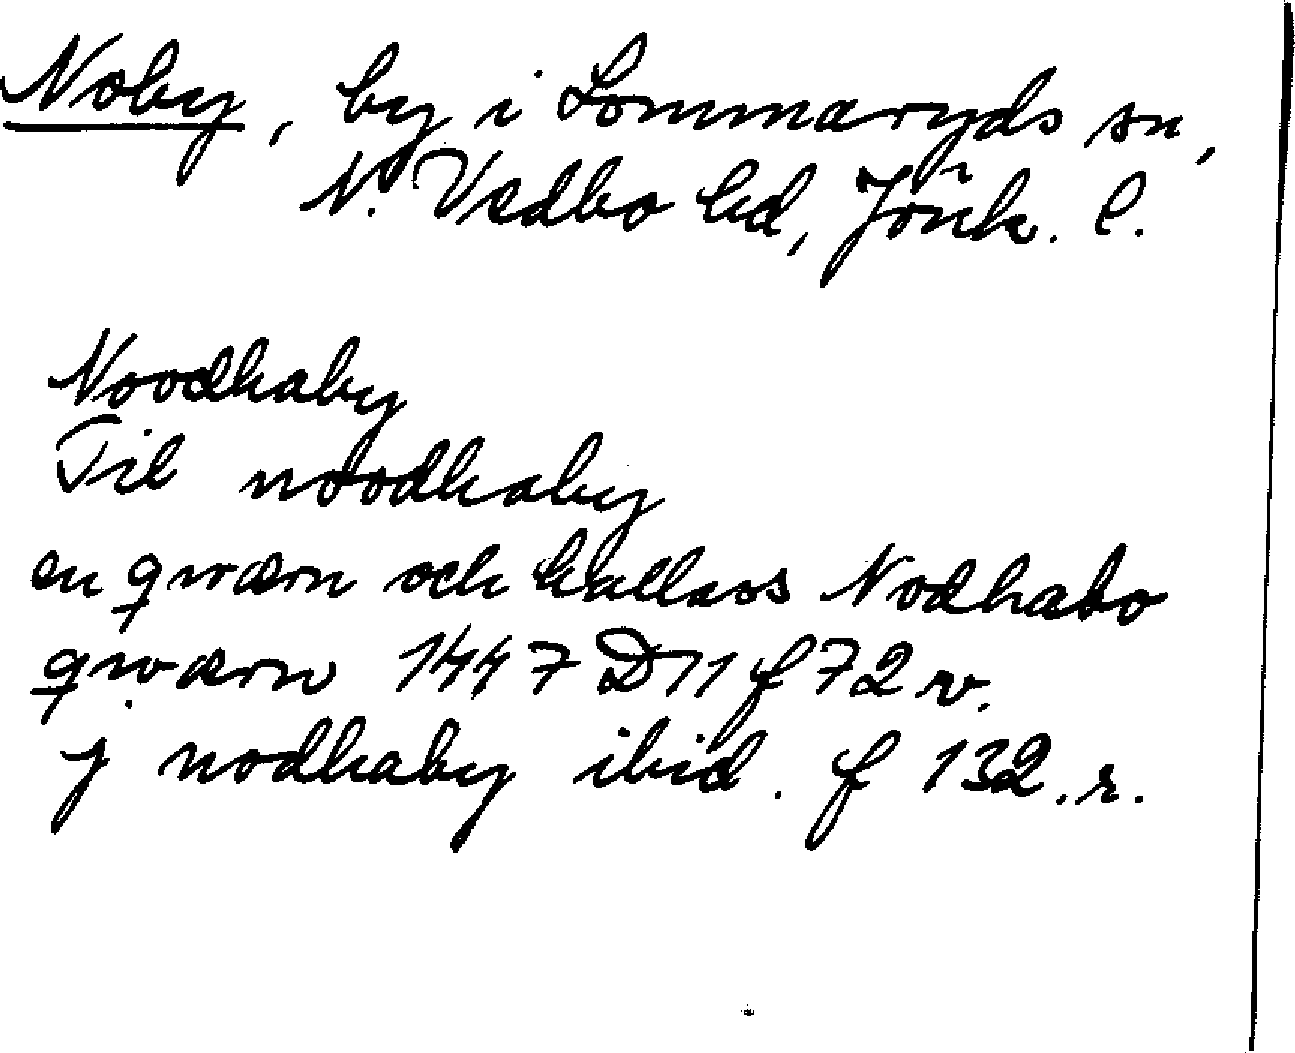 Noby, by i Lommaryds sn,
N. Vedbo hd, Jönk. l.
Noodhaby
Til noodhaby
en qwærn och kallass Nodhabo
qwærn 1447 D11 f 72 v.
j nodhaby ibid. f 132. r.